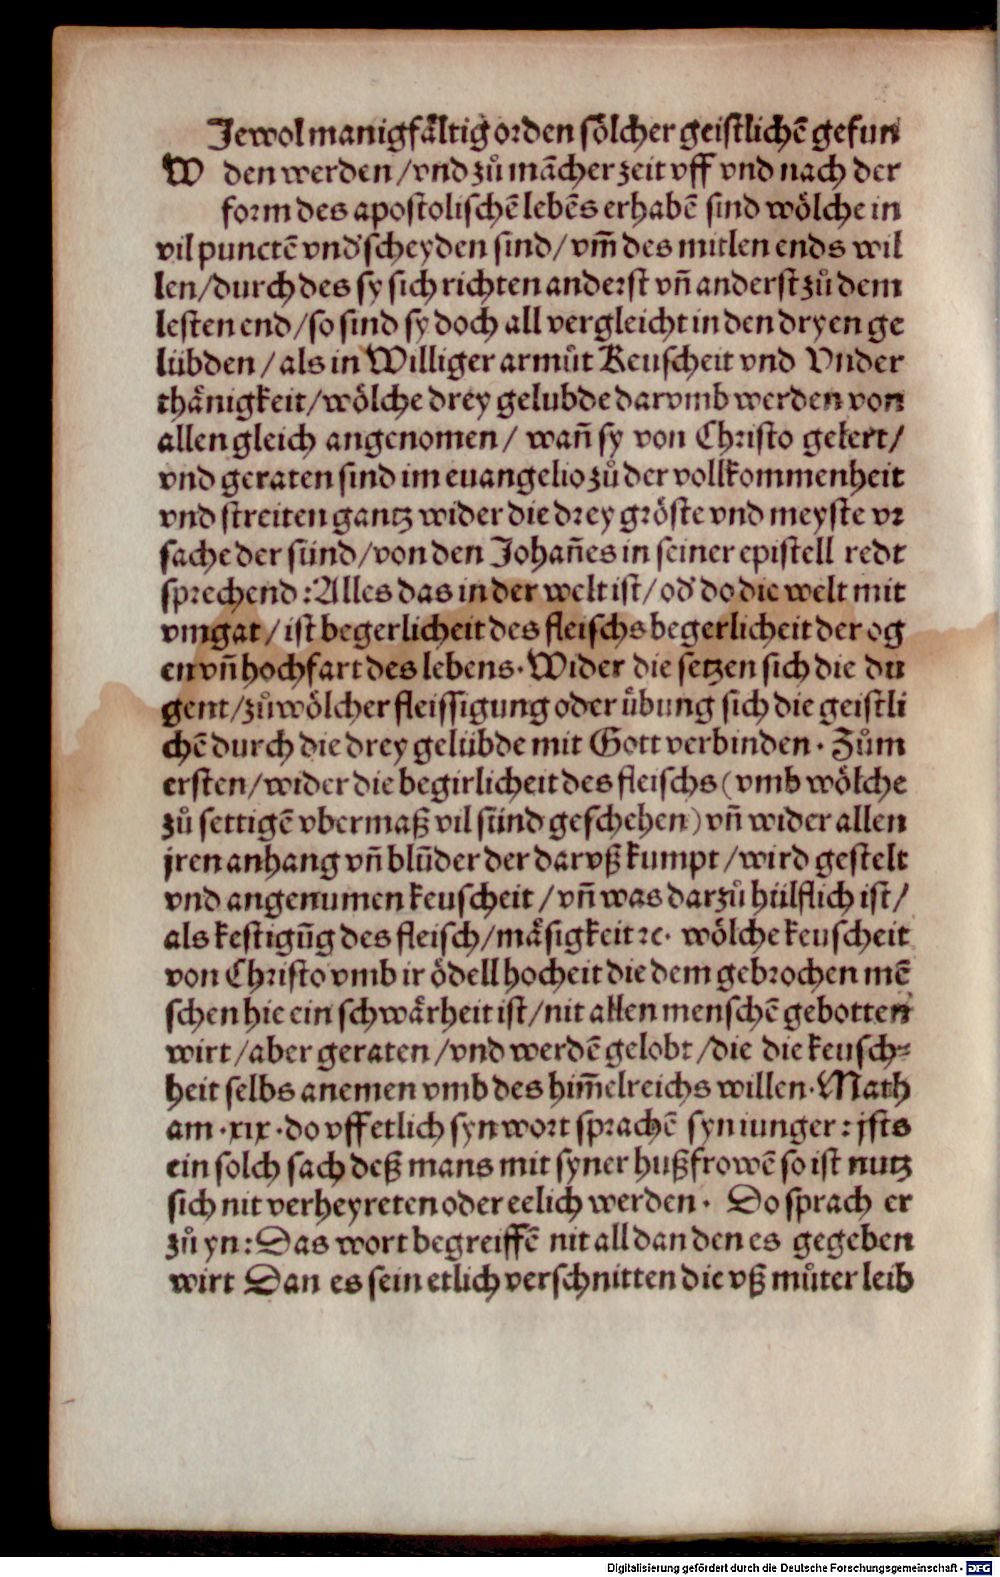 Jewol manigfåltig orden sôlcher geistlichē gefun
W den werden / vnd zů mācher zeit vff vnd nach der
form des apostolischē lebēs erhabē sind wôlche in
vil punctē vnd'scheyden sind / vm̄ des mitlen ends wil
len / durch des sy sich richten anderst vn̄ anderst zů dem
lesten end / so sind sy doch all vergleicht in den dryen ge
lübden / als in Williger armůt Keuscheit vnd Vnder
thånigkeit / wôlche drey gelubde darvmb werden von
allen gleich angenomen / wan̄ sy von Christo gelert /
vnd geraten sind im euangelio zů der vollkommenheit
vnd streiten gantz wider die drey grôste vnd meyste vr
sache der sünd / von den Johan̄es in seiner epistell redt
sprechend : Alles das in der welt ist / od' do die welt mit
vmgat / ist begerlicheit des fleischs begerlicheit der og
en vn̄ hochfart des lebens. Wider die setzen sich die du
gent / zů wôlcher fleissigung oder übung sich die geistli
chē durch die drey gelübde mit Gott verbinden. Zům
ersten / wider die begirlicheit des fleischs ( vmb wôlche
zů settigē vbermaß vil sünd geschehen ) vn̄ wider allen
jren anhang vn̄ blūder der darvß kumpt / wird gestelt
vnd angenumen keuscheit / vn̄ was darzů hülflich ist /
als kestigūg des fleisch / måsigkeit ⁊c. wôlche keuscheit
von Christo vmb ir ôdell hocheit die dem gebrochen mē
schen hie ein schwårheit ist / nit allen menschē gebotten
wirt / aber geraten / vnd werdē gelobt / die die keusch⸗
heit selbs anemen vmb des him̄elreichs willen. Math
am .xix. do vff etlich syn wort sprachē syn iunger : jsts
ein solch sach deß mans mit syner hußfrowē so ist nutz
sich nit verheyreten oder eelich werden. Do sprach er
zů yn : Das wort begreiffē nit all dan den es gegeben
wirt Dan es sein etlich verschnitten die vß můter leib
Digitalisierung gefördert durch die Deutsche Forschungsgemeinschaft - DFG